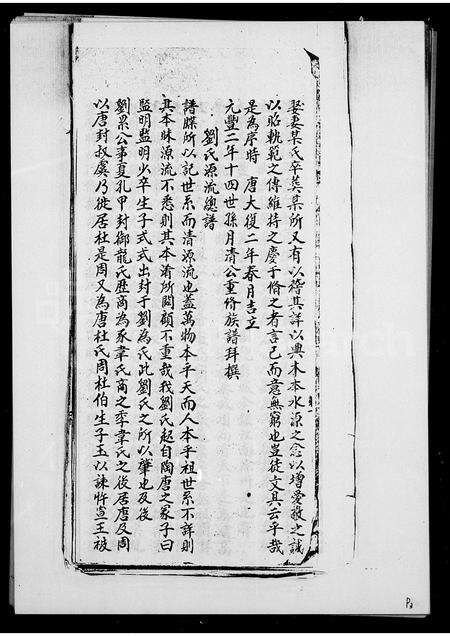 娶妻某氏卒葬某所又有以得其詳以興木本水源之念以增愛敬之誠
以昭軌範之傳維持之慶于脩之者言已而意無窮也豈徒文具云乎哉
是為序時　唐大復二年春月吉立
元豐二年十四世孫月清公重脩族譜拜撰
劉氏源流總譜
譜牒所以記世系而清源流也蓋萬物本乎天而人本乎祖世系不詳則
其本昧源流不悉則其本淆所關顧不重哉我劉氏起自陶唐之冢子曰
監明監明少卒生子式式出封于劉為氏此劉氏之所以肇也及後
劉累公事夏孔甲封御龍氏歷商為豕韋氏商之季韋氏之後居唐及周
以唐封叔虞乃徙居杜是周又為唐杜氏周杜伯生子玉以諫忤宣王被
P2